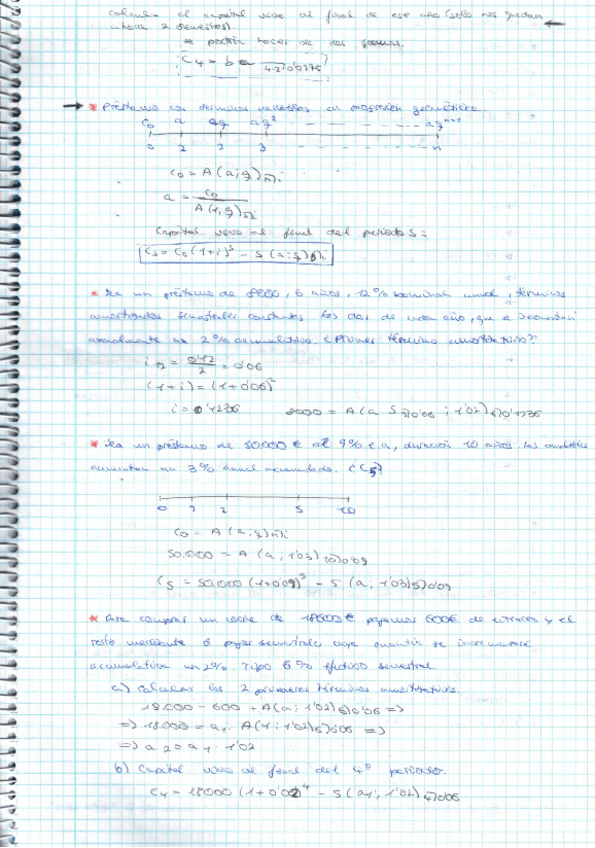 calcula el capital vivo al final de ese año (solo nos quedan
ahora 2 semestres).
* podría hacer de dos formas.
C4 = b a 4·2⌉0'0375
→ * Préstamo con términos variables en progresión geométrica.
C0 a aq aq² - - - - - - - aqⁿ⁻¹
0 1 2 3 - - - - - - - n
C0 = A(a;q)n⌉i
a = C0 / A(1,q)n⌉i
Capital vivo al final del periodo S =
Cs = C0(1+i)ˢ - S(a;q)s⌉i
* Sea un préstamo de 8000, 6 años, 12% nominal anual, términos
amortizativos semestrales constantes los dos de cada año, que
anualmente un 2% acumulativo. ¿Primer término amortizativo?
i12 = 0'12/2 = 0'06
(1+i) = (1+0'06)²
i = 0'1236 8000 = A(a S2⌉0'06 ; 1'02)6⌉0'1236
* Sea un préstamo de 50.000 € al 9% e.a, duración 10 años. Las anualidades
aumentan un 3% anual acumulado. ¿C5?
0 1 2 5 10
C0 = A(a;q)n⌉i
50.000 = A(a; 1'03)10⌉0'09
C5 = 50.000(1+0'09)⁵ - S(a; 1'03)5⌉0'09
* Para comprar un coche de 18600 € pagamos 600€ de entrada y el
resto mediante 6 pagos semestrales cuya cuantía se incrementará
acumulativa un 2%. Tipo 6% efectivo semestral
a) Calcular los 2 primeros términos amortizativos.
18.000 - 600 = A(a; 1'02)6⌉0'06 =>
=> 18.000 = a1 · A(1; 1'02)6⌉0'06 =>
=> a2 = a1 · 1'02
b) Capital vivo al final del 4º periodo.
C4 = 18000(1+0'02)⁴ - S(a1; 1'02)4⌉0'06